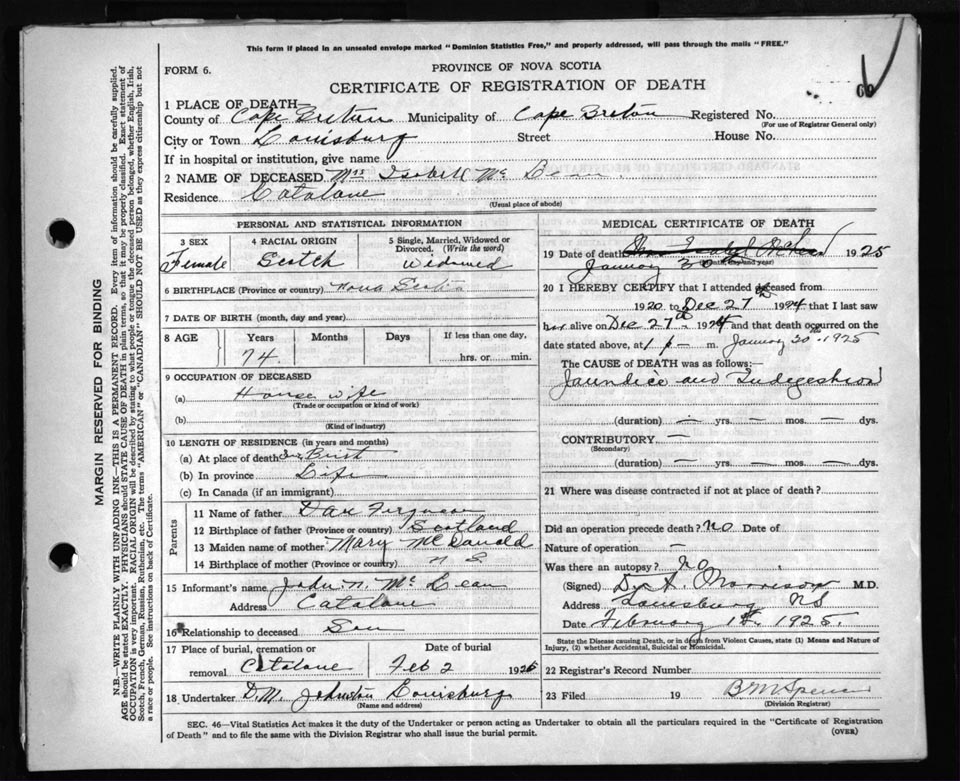 This form if placed in an unsealed envelope marked "Dominion Statistics Free," and properly addressed, will pass through the mails "FREE."
FORM 6.
PROVINCE OF NOVA SCOTIA
CERTIFICATE OF REGISTRATION OF DEATH
1 PLACE OF DEATH
County of Cape Breton Municipality of Cape Breton Registered No.
(For use of Registrar General only)
City or Town Louisburg Street House No.
If in hospital or institution, give name
2 NAME OF DECEASED Mrs Isabell Mc Lean
Residence Catalone
(Usual place of abode)
PERSONAL AND STATISTICAL INFORMATION
3 SEX Female
4 RACIAL ORIGIN Scotch
5 Single, Married, Widowed or Divorced. (Write the word) Widowed
6 BIRTHPLACE (Province or country) Nova Scotia
7 DATE OF BIRTH (month, day and year)
8 AGE Years Months Days If less than one day,
74 hrs. or min.
9 OCCUPATION OF DECEASED
(a) House wife
(Trade or occupation or kind of work)
(b)
(Kind of industry)
10 LENGTH OF RESIDENCE (in years and months)
(a) At place of death
(b) In province Life
(c) In Canada (if an immigrant)
Parents
11 Name of father Dan Ferguson
12 Birthplace of father (Province or country) Scotland
13 Maiden name of mother Mary McDonald
14 Birthplace of mother (Province or country) N S
15 Informant's name John N. Mc Lean
Address Catalone
16 Relationship to deceased Son
17 Place of burial, cremation or removal Catalone
Date of burial Feb 2 1925
18 Undertaker D. M. Johnston Louisburg
(Name and address)
MEDICAL CERTIFICATE OF DEATH
19 Date of death 1925
January 30
(Month, day and year)
20 I HEREBY CERTIFY that I attended deceased from
1920 to Dec 27th 1924 that I last saw
her alive on Dec 27th 1924 and that death occurred on the
date stated above, at 1 p m. January 30th 1925
The CAUSE of DEATH was as follows:
Jaundice and Indigestion
(duration) — yrs. — mos. — dys.
CONTRIBUTORY —
(Secondary)
(duration) — yrs. — mos. — dys.
21 Where was disease contracted if not at place of death?
Did an operation precede death? No Date of
Nature of operation —
Was there an autopsy? No
(Signed) D. A. Morrison M.D.
Address Louisburg NS
Date February 1st. 1925.
State the Disease causing Death, or in death from Violent Causes, state (1) Means and Nature of
Injury, (2) whether Accidental, Suicidal or Homicidal.
22 Registrar's Record Number
23 Filed 19 B M Spencer
(Division Registrar)
SEC. 46—Vital Statistics Act makes it the duty of the Undertaker or person acting as Undertaker to obtain all the particulars required in the "Certificate of Registration
of Death" and to file the same with the Division Registrar who shall issue the burial permit.
(OVER)
MARGIN RESERVED FOR BINDING
N.B.—WRITE PLAINLY WITH UNFADING INK—THIS IS A PERMANENT RECORD. Every item of information should be carefully supplied.
AGE should be stated EXACTLY. PHYSICIANS should STATE CAUSE OF DEATH in plain terms, so that it may be properly classified. Exact statement of
OCCUPATION is very important. RACIAL ORIGIN will be described by stating to what people or tongue the deceased person belonged, whether English, Irish,
Scotch, French, German, Russian, Ruthenian, etc. The terms "AMERICAN" or "CANADIAN" SHOULD NOT BE USED as they express citizenship but not
a race or people. See instructions on back of Certificate.